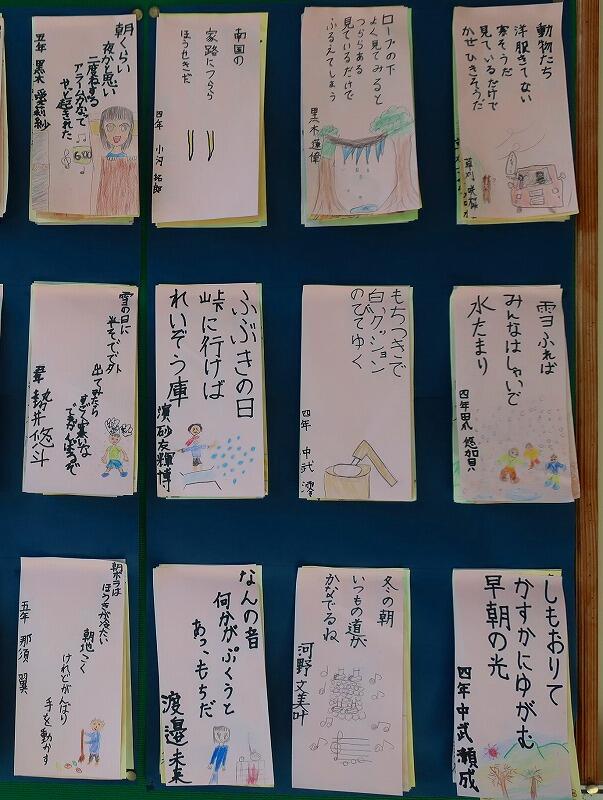 動物たち
洋服きてない
寒そうだ
見ているだけで
かぜひきそうだ
ロープの下
よく見てみると
つららある
見ているだけで
ふるえてしまう
黒木蓮偉
南国の
家路につらら
ほうせきだ
四年 小河 拓郎
朝くらい
夜かと思い
二度ねする
アラームがなって
やっと起きれた
五年 黒木
雪ふれば
みんなはしゃいで
水たまり
四年
もちつきで
白いクッション
のびてゆく
四年 中武 澪
ふぶきの日
峠に行けば
れいぞう庫
濵砂友輝博
雪の日に
半そでで外
出てみたら
すごく寒いな
しもおりて
かすかにゆがむ
早朝の光
四年中武 頼成
冬の朝
いつもの道が
かなでるね
河野 文美叶
なんの音
何かがぷくうと
あっ、もちだ
渡邉 未来
朝ボラは
ほうきが冷たい
朝地ごく
けれどがんばり
手を動かす
五年 那須 翼